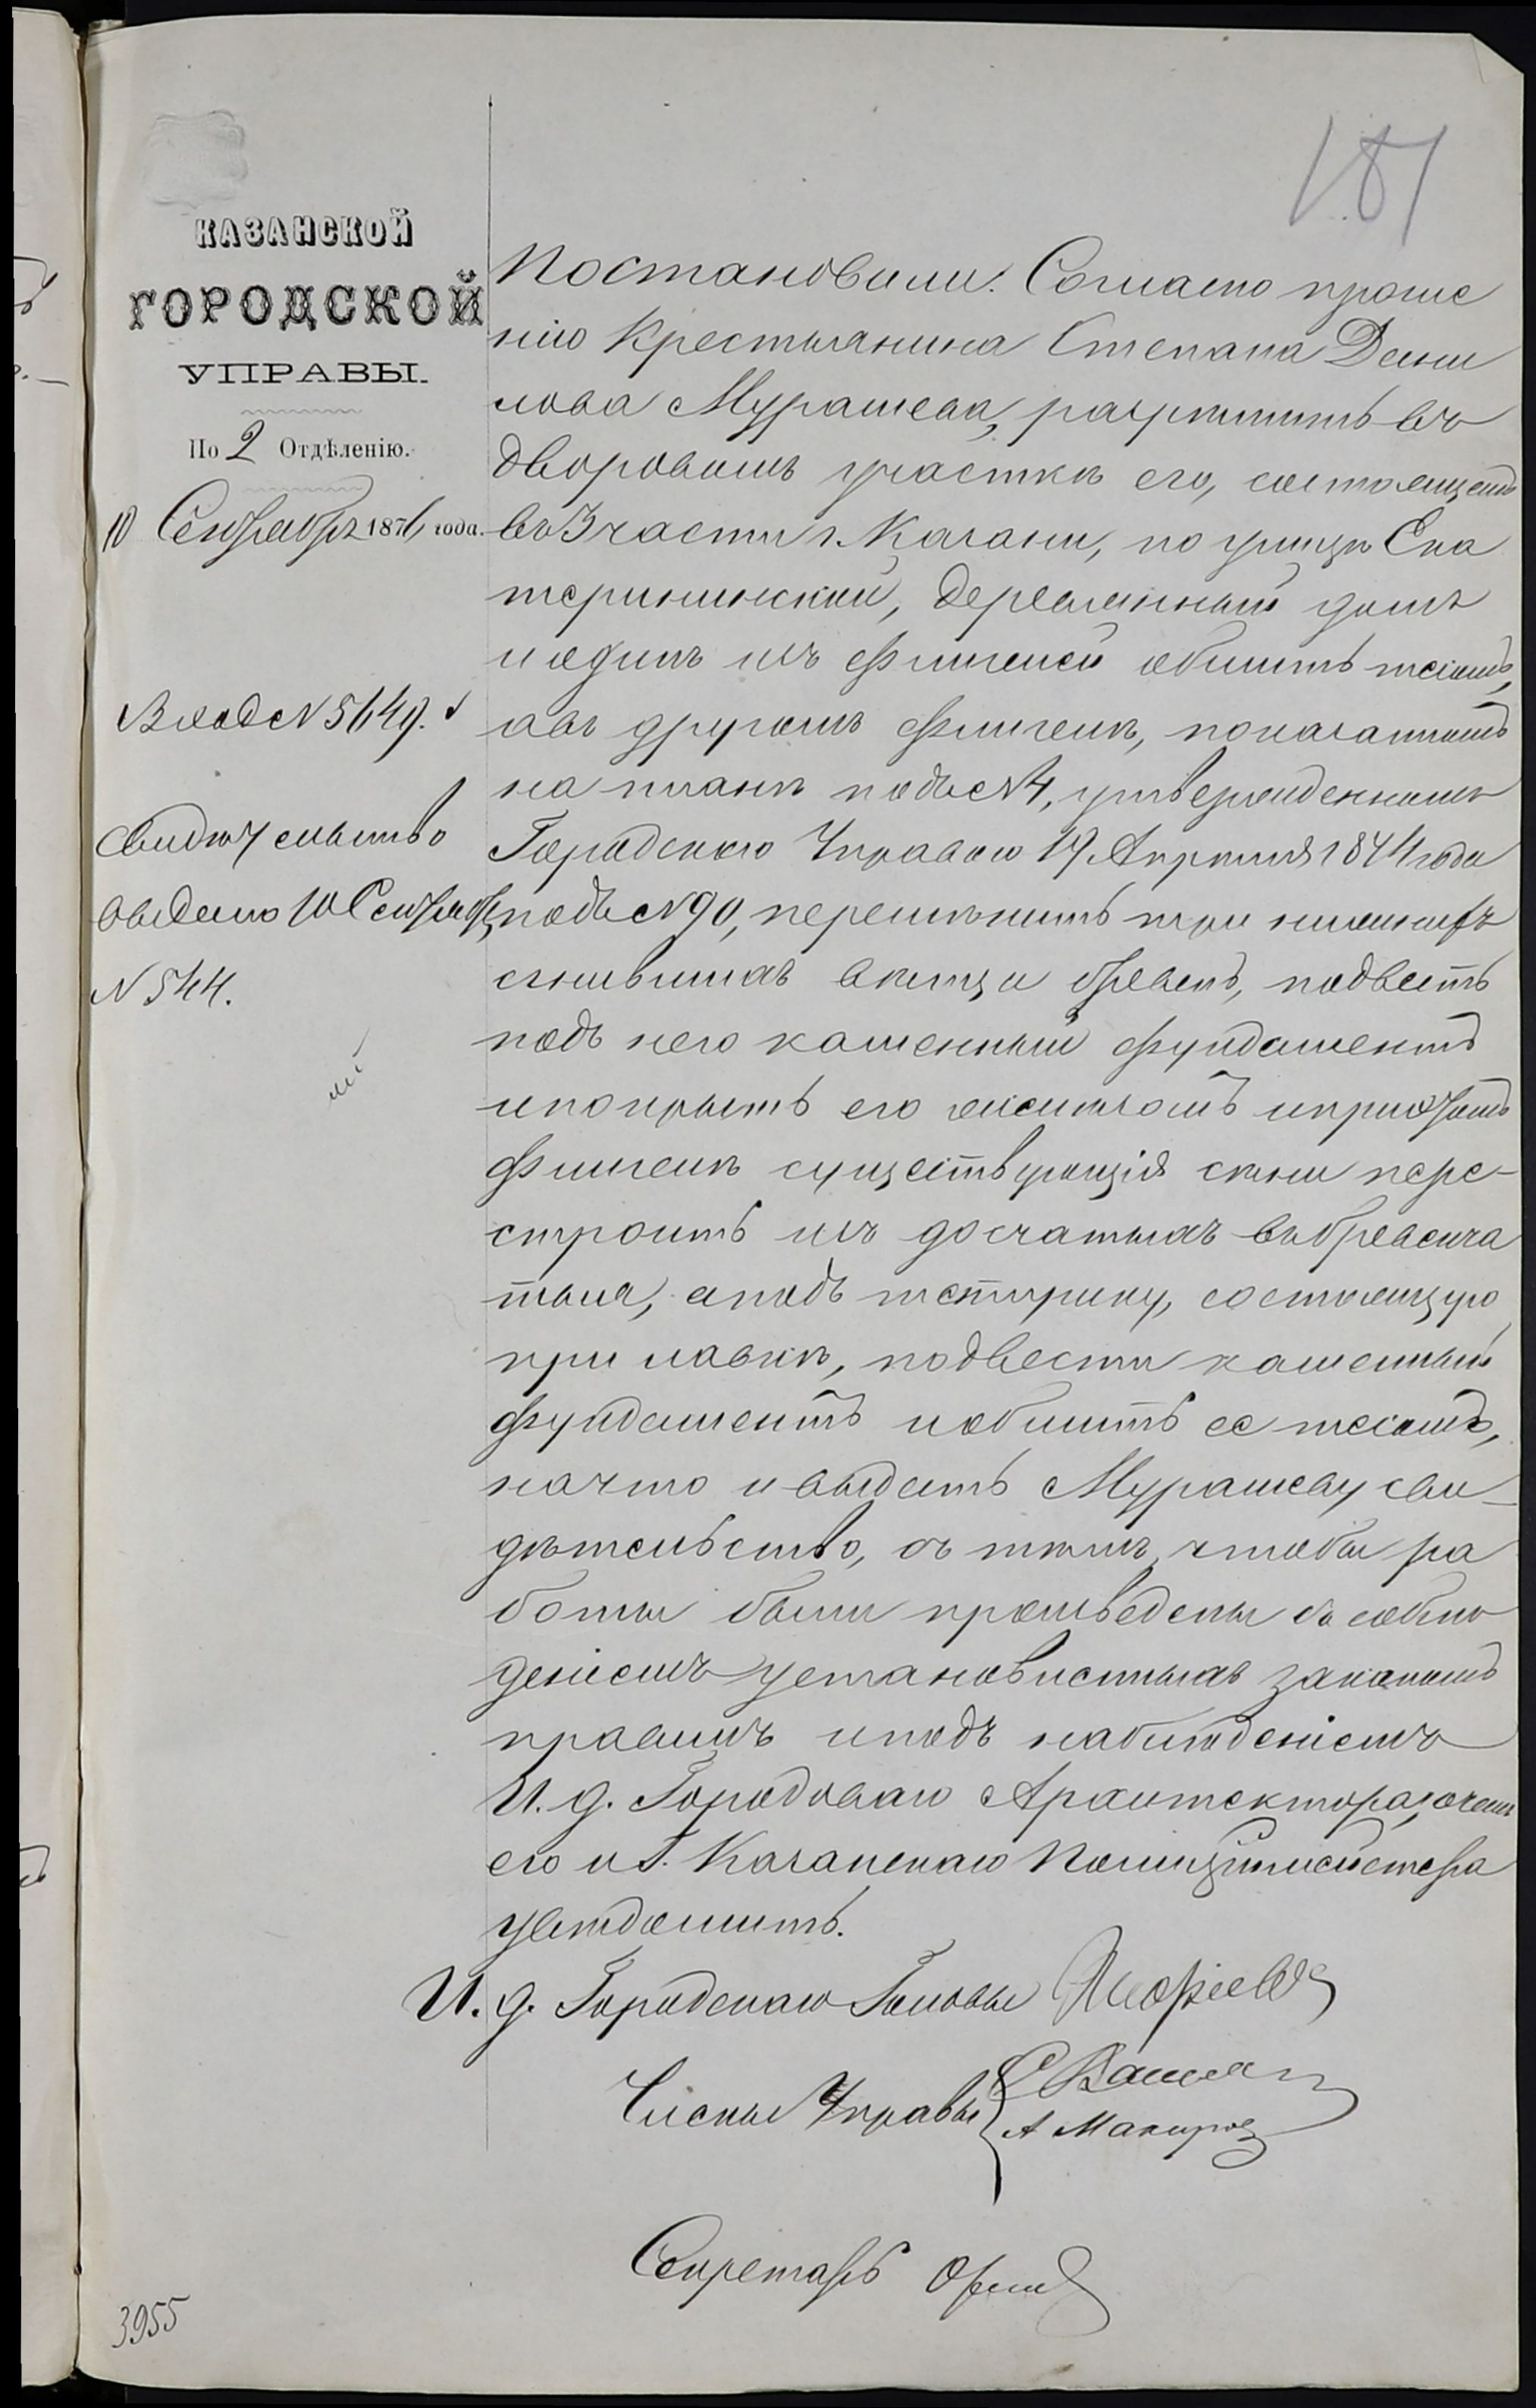 181
КАЗАНСКОЙ
ГОРОДСКОЙ
УПРАВЫ.
По 2 Отдѣленію.
10 Сентября 1876 года.
Вход № 5649.
Свидѣтельство
выдано 10 Сентября
№ 544.
Постановили: Согласно проше
нію Крестьянина Степана Дани
лова Мурашева, разрѣшить въ
дворовомъ участкѣ его, состоящемъ
въ 3 части г. Казани, по улицѣ Ека
терининской, деревянный домъ
и одинъ изъ флигелей обшить тесомъ,
а въ другомъ флигелѣ, показанномъ
на планѣ подъ № 4, утвержденномъ
Городскою Управою 19 Апрѣля 1874 года
подъ № 90, перемѣнить три нижнихъ
сгнившихъ венца бревенъ, подвесть
подъ него каменный фундаментъ
и покрыть его желѣзомъ и при этомъ
флигелѣ существующія сѣни пере-
строить изъ досчатыхъ въ бревенча
тыя, а подъ пристройку, состоящую
при лавкѣ, подвести каменный
фундаментъ и обшить ее тесомъ,
на что и выдать Мурашеву сви-
дѣтельство, съ тѣмъ, чтобы ра
боты были произведены съ соблю
деніемъ установленныхъ закономъ
правилъ и подъ наблюденіемъ
И. д. Городоваго Архитектора, о чемъ
его и Г. Казанскаго Полицiймейстера
увѣдомить.
И. д. Городскаго Головы
Члены Управы
Секретарь
3955